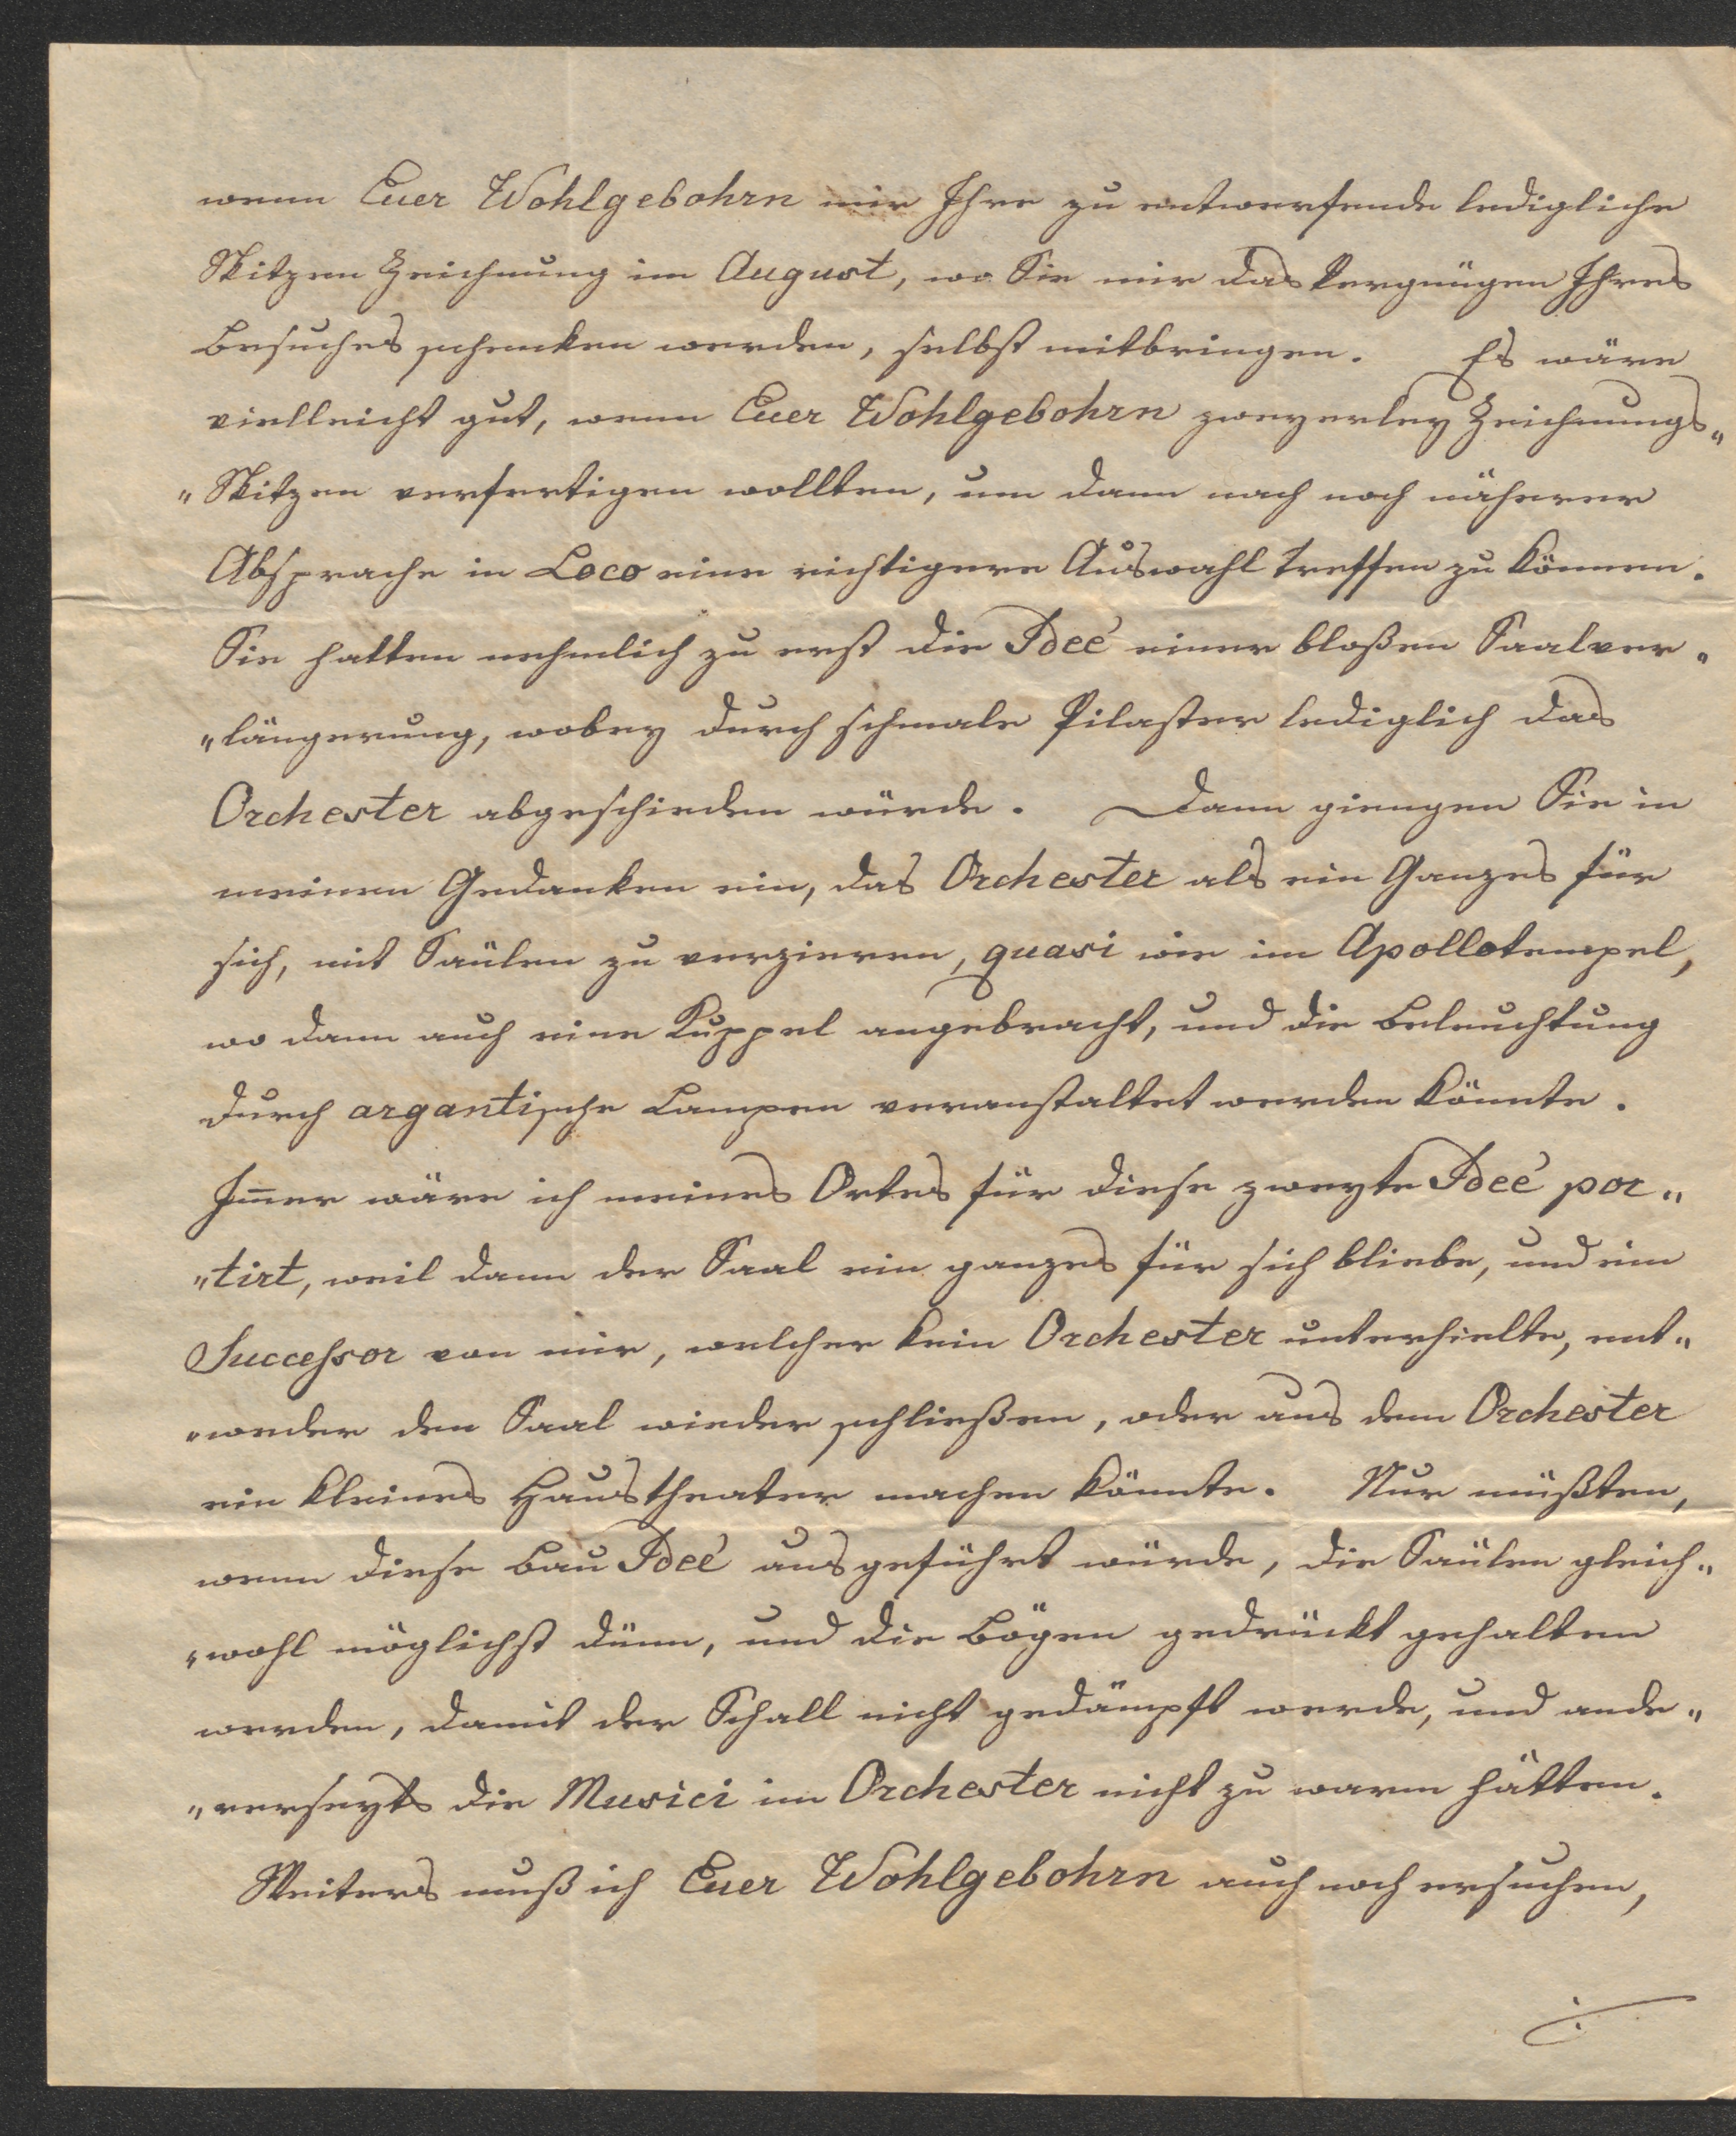 wenn Euer Wohlgebohrn mir Ihre zu entwerfende ledigliche
Skitzen Zeichnung im August, wo Sie mir das Vergnügen Ihres
Besuches schenken werden, selbst mitbringen. Es wäre
vielleicht gut, wenn Euer Wohlgebohrn zweyerley Zeichnungs„
„Skitzen verfertigen wollten, um dann nach noch näherer
Absprache in Loco eine richtigere Auswahl treffen zu können.
Sie hatten nehmlich zu erst die Ideé einer bloßen Saalver„
„längerung, wobey durch schmale Pilaster lediglich das
Orchester abgeschieden würde. Dann giengen Sie in
meinen Gedanken ein, das Orchester als ein Ganzes für
sich, mit Säulen zu verzieren, quasi wie im Apollotempel,
wo dann auch eine Kuppel angebracht, und die Beleuchtung
durch argantische Lampen veranstaltet werden könnte.
Im̄er wäre ich meines Ortes für diese zweyte Ideé por„
„tirt, weil dann der Saal ein ganzes für sich bliebe, und ein
Successor von mir, welcher kein Orchester unterhielte, ent„
„weder den Saal wieder schließen, oder aus dem Orchester
ein kleines Haustheater machen könnte. Nur müßten,
wenn diese Bau Ideé ausgeführt würde, die Säulen gleich„
„wohl möglichst dünn, und die Bögen gedrückt gehalten
werden, damit der Schall nicht gedämpft werde, und ande„
„rerseyts die Musici im Orchester nicht zu warm hätten.
Weiters muß ich Euer Wohlgebohrn auch noch ersuchen,